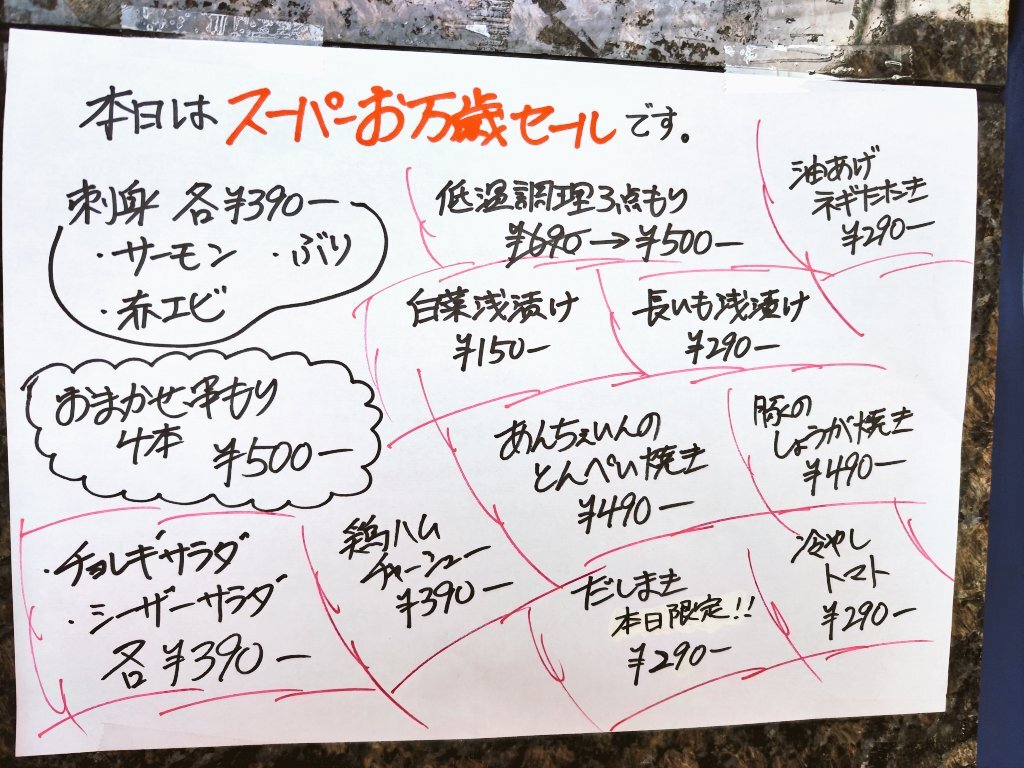 本日はスーパーお万歳セールです。
刺身 各¥390ー
・サーモン ・ぶり
・赤エビ
低温調理3点もり
¥690→¥500ー
油あげ
ネギたたき
¥290ー
白菜浅漬け
¥150ー
長いも浅漬け
¥290ー
おまかせ串もり
4本 ¥500ー
あんちぇいんの
とんぺい焼き
¥490ー
豚の
しょうが焼き
¥490ー
・チョレギサラダ
・シーザーサラダ
各¥390ー
鶏ハム
チャーシュー
¥390ー
だしまき
本日限定!!
¥290ー
冷やし
トマト
¥290ー